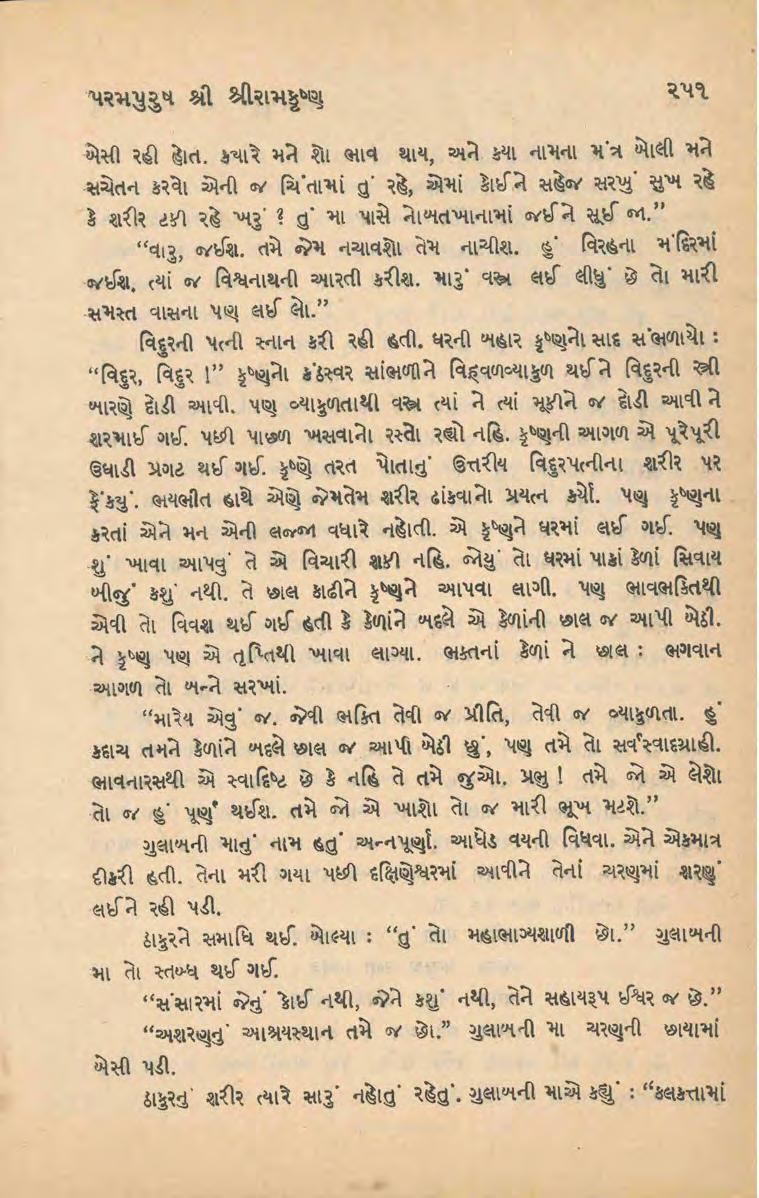 પરમપુરુષ શ્રી શ્રીરામકૃષ્ણ
૨૫૧
બેસી રહી હોત. ક્યારે મને શો ભાવ થાય, અને કયા નામના મંત્ર બોલી મને
સચેતન કરવો એની જ ચિંતામાં તું રહે, એમાં કોઈને સહેજ સરખું સુખ રહે
કે શરીર ટકી રહે ખરું ? તું મા પાસે નોબતખાનામાં જઈને સૂઈ જા.”
“વારુ, જઈશ. તમે જેમ નચાવશો તેમ નાચીશ. હું વિરહના મંદિરમાં
જઈશ, ત્યાં જ વિશ્વનાથની આરતી કરીશ. મારું વસ્ત્ર લઈ લીધું છે તો મારી
સમસ્ત વાસના પણ લઈ લો.”
વિદુરની પત્ની સ્નાન કરી રહી હતી. ઘરની બહાર કૃષ્ણનો સાદ સંભળાયો :
“વિદુર, વિદુર !” કૃષ્ણનો કંઠસ્વર સાંભળીને વિહ્વળવ્યાકુળ થઈને વિદુરની સ્ત્રી
બારણે દોડી આવી. પણ વ્યાકુળતાથી વસ્ત્ર ત્યાં ને ત્યાં મૂકીને જ દોડી આવી ને
શરમાઈ ગઈ. પછી પાછળ ખસવાનો રસ્તો રહ્યો નહિ. કૃષ્ણની આગળ એ પૂરેપૂરી
ઉઘાડી પ્રગટ થઈ ગઈ. કૃષ્ણે તરત પોતાનું ઉત્તરીય વિદુરપત્નીના શરીર પર
ફેંક્યું. ભયભીત હાથે એણે જેમતેમ શરીર ઢાંકવાનો પ્રયત્ન કર્યો. પણ કૃષ્ણના
કરતાં એને મન એની લજ્જા વધારે નહોતી. એ કૃષ્ણને ઘરમાં લઈ ગઈ. પણ
શું ખાવા આપવું તે એ વિચારી શકી નહિ. જોયું તો ઘરમાં પાકાં કેળાં સિવાય
બીજું કશું નથી. તે છાલ કાઢીને કૃષ્ણને આપવા લાગી. પણ ભાવભક્તિથી
એવી તો વિવશ થઈ ગઈ હતી કે કેળાંને બદલે એ કેળાંની છાલ જ આપી બેઠી.
ને કૃષ્ણ પણ એ તૃપ્તિથી ખાવા લાગ્યા. ભક્તનાં કેળાં ને છાલ : ભગવાન
આગળ તો બન્ને સરખાં.
“મારેય એવું જ. જેવી ભક્તિ તેવી જ પ્રીતિ, તેવી જ વ્યાકુળતા. હું
કદાચ તમને કેળાંને બદલે છાલ જ આપી બેઠી છું, પણ તમે તો સર્વસ્વાદગ્રાહી.
ભાવનારસથી એ સ્વાદિષ્ટ છે કે નહિ તે તમે જુઓ. પ્રભુ ! તમે જો એ લેશો
તો જ હું પૂર્ણ થઈશ. તમે જો એ ખાશો તો જ મારી ભૂખ મટશે.”
ગુલાબની માનું નામ હતું અન્નપૂર્ણા. આધેડ વયની વિધવા. એને એકમાત્ર
દીકરી હતી. તેના મરી ગયા પછી દક્ષિણેશ્વરમાં આવીને તેનાં ચરણમાં શરણું
લઈને રહી પડી.
ઠાકુરને સમાધિ થઈ. બોલ્યા : “તું તો મહાભાગ્યશાળી છો.” ગુલાબની
મા તો સ્તબ્ધ થઈ ગઈ.
“સંસારમાં જેનું કોઈ નથી, જેને કશું નથી, તેને સહાયરૂપ ઈશ્વર જ છે.”
“અશરણનું આશ્રયસ્થાન તમે જ છો.” ગુલાબની મા ચરણની છાયામાં
બેસી પડી.
ઠાકુરનું શરીર ત્યારે સારું નહોતું રહેતું. ગુલાબની માએ કહ્યું : “કલકત્તામાં